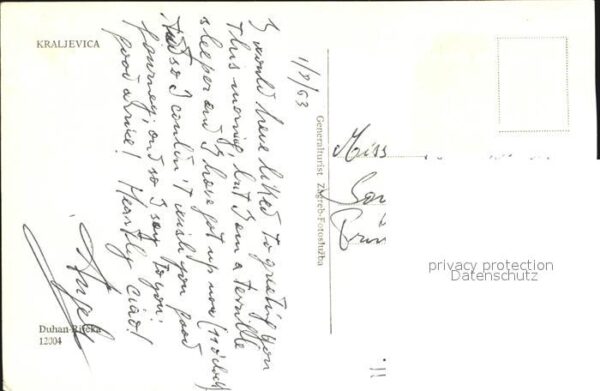 KRALJEVICA
1/8/63
I would have liked to greeting you
this morning, but I am a terrible
sleeper and I have got up now (11 o'clock)
And so I couldn't wish you good
journey, and so I say to you:
good drive! Heartly ciao!
Duhan-Rijeka
12004
Generalturist Zagreb-Fotoslužba
Miss
privacy protection
Datenschutz